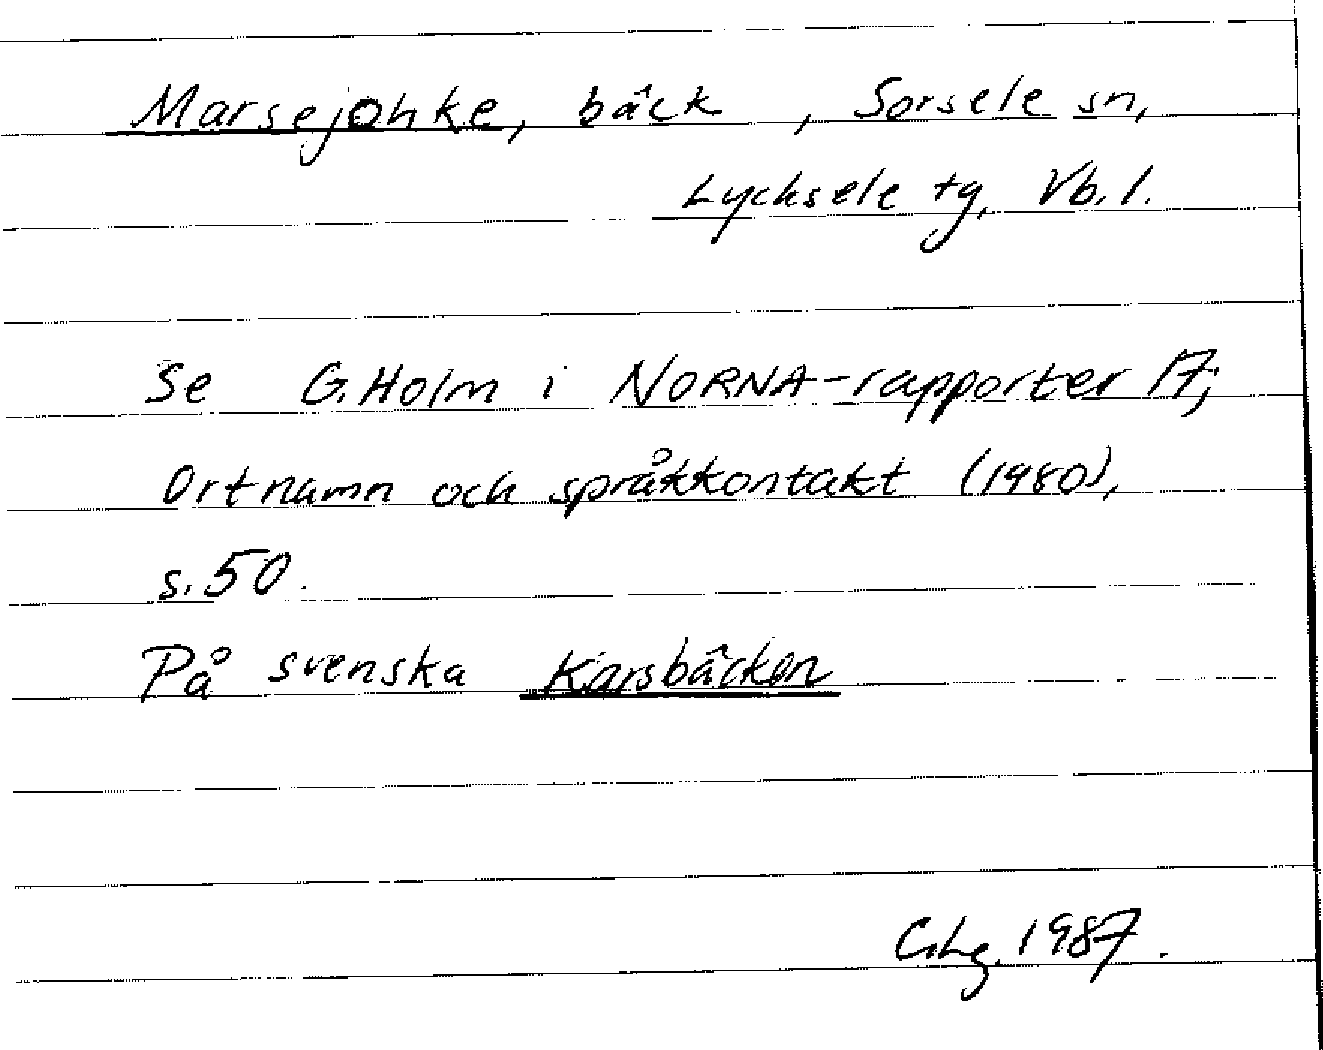 Marsejohke, bäck , Sorsele sn,
Lycksele tg, Vb. l.
Se G. Holm i NORNA-rapporter 17;
Ortnamn och språkkontakt (1980),
s. 50.
På svenska Karsbäcken
C.Lg. 1987.